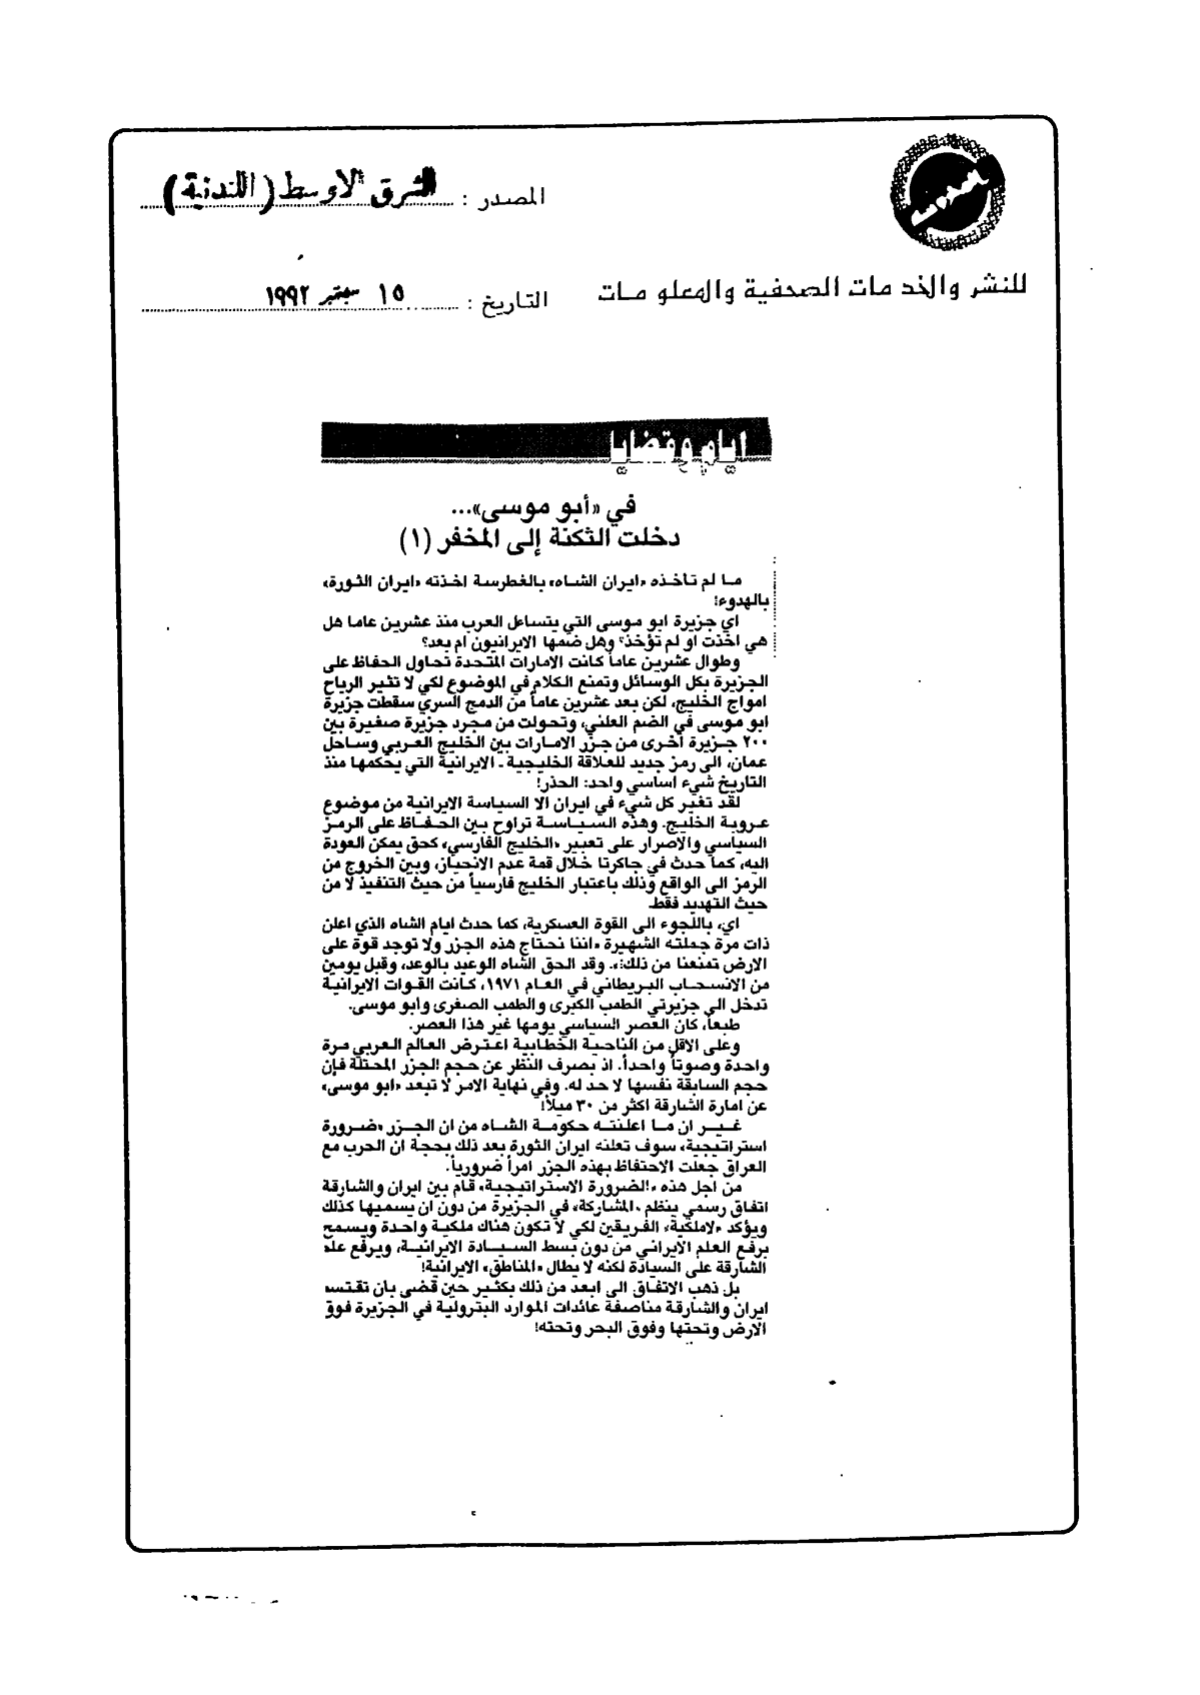 المصدر : الشرق الاوسط (اللندنية)
للنشر والخدمات الصحفية والمعلومات
التاريخ : ١٥ سبتمبر ١٩٩٢
ايام وقضايا
في «أبو موسى»...
دخلت الثكنة إلى المخفر (١)
ما لم تأخذه «ايران الشاه» بالغطرسة اخذته «ايران الثورة»
بالهدوء!
اي جزيرة ابو موسى التي يتساءل العرب منذ عشرين عاما هل
هي اخذت او لم تؤخذ؟ وهل ضمها الايرانيون ام بعد؟
وطوال عشرين عاماً كانت الامارات المتحدة تحاول الحفاظ على
الجزيرة بكل الوسائل وتمنع الكلام في الموضوع لكي لا تثير الرياح
امواج الخليج، لكن بعد عشرين عاماً من الدمج السري سقطت جزيرة
ابو موسى في الضم العلني، وتحولت من مجرد جزيرة صغيرة بين
٢٠٠ جزيرة أخرى من جزر الامارات بين الخليج العربي وساحل
عمان، الى رمز جديد للعلاقة الخليجية ـ الايرانية التي يحكمها منذ
التاريخ شيء اساسي واحد: الحذر!
لقد تغير كل شيء في ايران الا السياسة الايرانية من موضوع
عروبة الخليج. وهذه السياسة تراوح بين الحفاظ على الرمز
السياسي والاصرار على تعبير «الخليج الفارسي» كحق يمكن العودة
اليه، كما حدث في جاكرتا خلال قمة عدم الانحياز، وبين الخروج من
الرمز الى الواقع وذلك باعتبار الخليج فارسياً من حيث التنفيذ لا من
حيث التهديد فقط.
اي، باللجوء الى القوة العسكرية، كما حدث ايام الشاه الذي اعلن
ذات مرة جملته الشهيرة «اننا نحتاج هذه الجزر ولا توجد قوة على
الارض تمنعنا من ذلك!». وقد الحق الشاه الوعيد بالوعد، وقبل يومين
من الانسحاب البريطاني في العام ١٩٧١، كانت القوات الايرانية
تدخل الى جزيرتي الطمب الكبرى والطمب الصغرى وابو موسى.
طبعاً، كان العصر السياسي يومها غير هذا العصر.
وعلى الاقل من الناحية الخطابية اعترض العالم العربي مرة
واحدة وصوتاً واحداً. اذ بصرف النظر عن حجم الجزر المحتلة فإن
حجم السابقة نفسها لا حد له. وفي نهاية الامر لا تبعد «ابو موسى»
عن امارة الشارقة اكثر من ٣٠ ميلاً!
غير ان ما اعلنته حكومة الشاه من ان الجزر «ضرورة
استراتيجية» سوف تعلنه ايران الثورة بعد ذلك بحجة ان الحرب مع
العراق جعلت الاحتفاظ بهذه الجزر امراً ضرورياً.
من اجل هذه «الضرورة الاستراتيجية» قام بين ايران والشارقة
اتفاق رسمي ينظم «المشاركة» في الجزيرة من دون ان يسميها كذلك
ويؤكد «لاملكية» الفريقين لكي لا تكون هناك ملكية واحدة ويسمح
برفع العلم الايراني من دون بسط السيادة الايرانية، ويرفع علم
الشارقة على السيادة لكنه لا يطال «المناطق» الايرانية!
بل ذهب الاتفاق الى ابعد من ذلك بكثير حين قضى بان تقتسم
ايران والشارقة مناصفة عائدات الموارد البترولية في الجزيرة فوق
الارض وتحتها وفوق البحر وتحته!